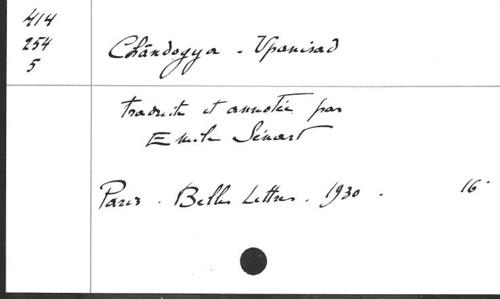 414
254
5
Chāndogya - Upanisad
traduite et annotée par
Emile Sénart
Paris . Belles Lettres . 1930 . 16°